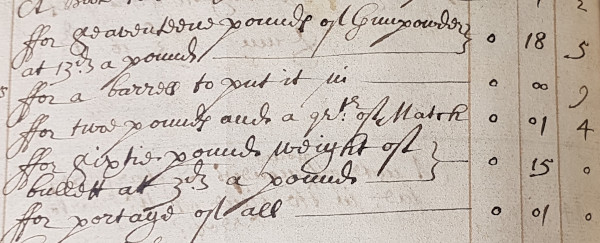 ffor seaventeene pounds of Gunpowder } 0 18 5
at 13d a pounde
ffor a barrell to put it in 0 00 9
ffor twoe pounds and a qrtr of Match 0 01 4
ffor sixtie pounds weight of } 0 15 0
bullett at 3d a pounde
ffor portage of all 0 01 0